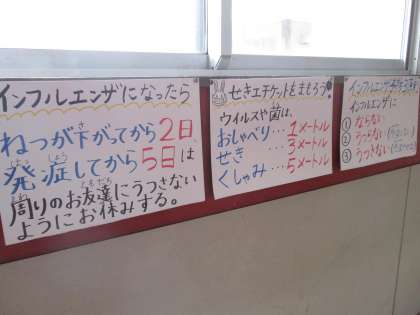 インフルエンザになったら
ねつが下がってから2日、
発症してから5日は、
周りのお友達にうつさない
ようにお休みする。
せきエチケットをまもろう!
ウイルスや菌は、
おしゃべり…1メートル
せき…3メートル
くしゃみ…5メートル
インフルエンザ
インフルエンザに
① ならない
② うつらない
③ うつさない